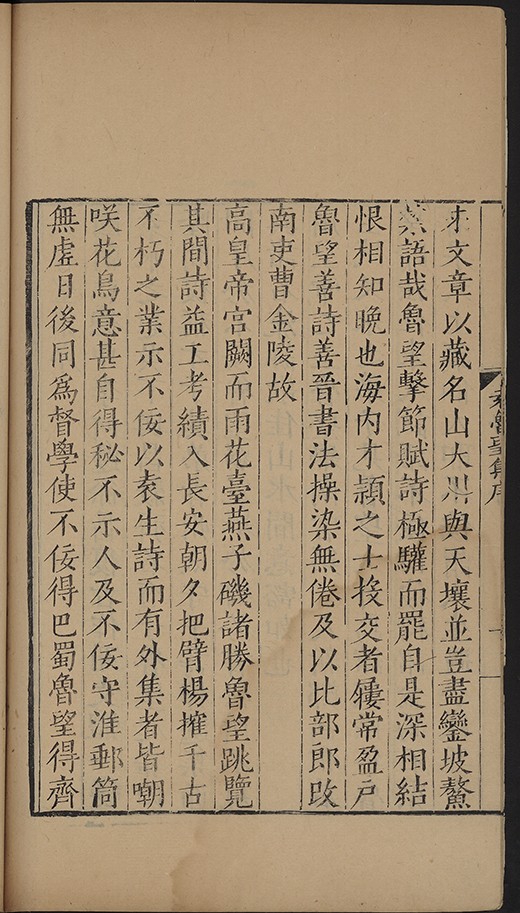 魯望集序
才文章以藏名山大川與天壤並豈盡鑾坡鰲
禁語哉魯望擊節賦詩極驩而罷自是深相結
恨相知晚也海内才頴之士投交者屨常盈戶
魯望善詩善晉書法操染無倦及以比部郎改
南吏曹金陵故
高皇帝宮闕而雨花臺燕子磯諸勝魯望跳覽
其間詩益工考績入長安朝夕把臂楊搉千古
不朽之業示不佞以袁生詩而有外集者皆嘲
咲花鳥意甚自得秘不示人及不佞守淮郵筒
無虛日後同爲督學使不佞得巴蜀魯望得齊